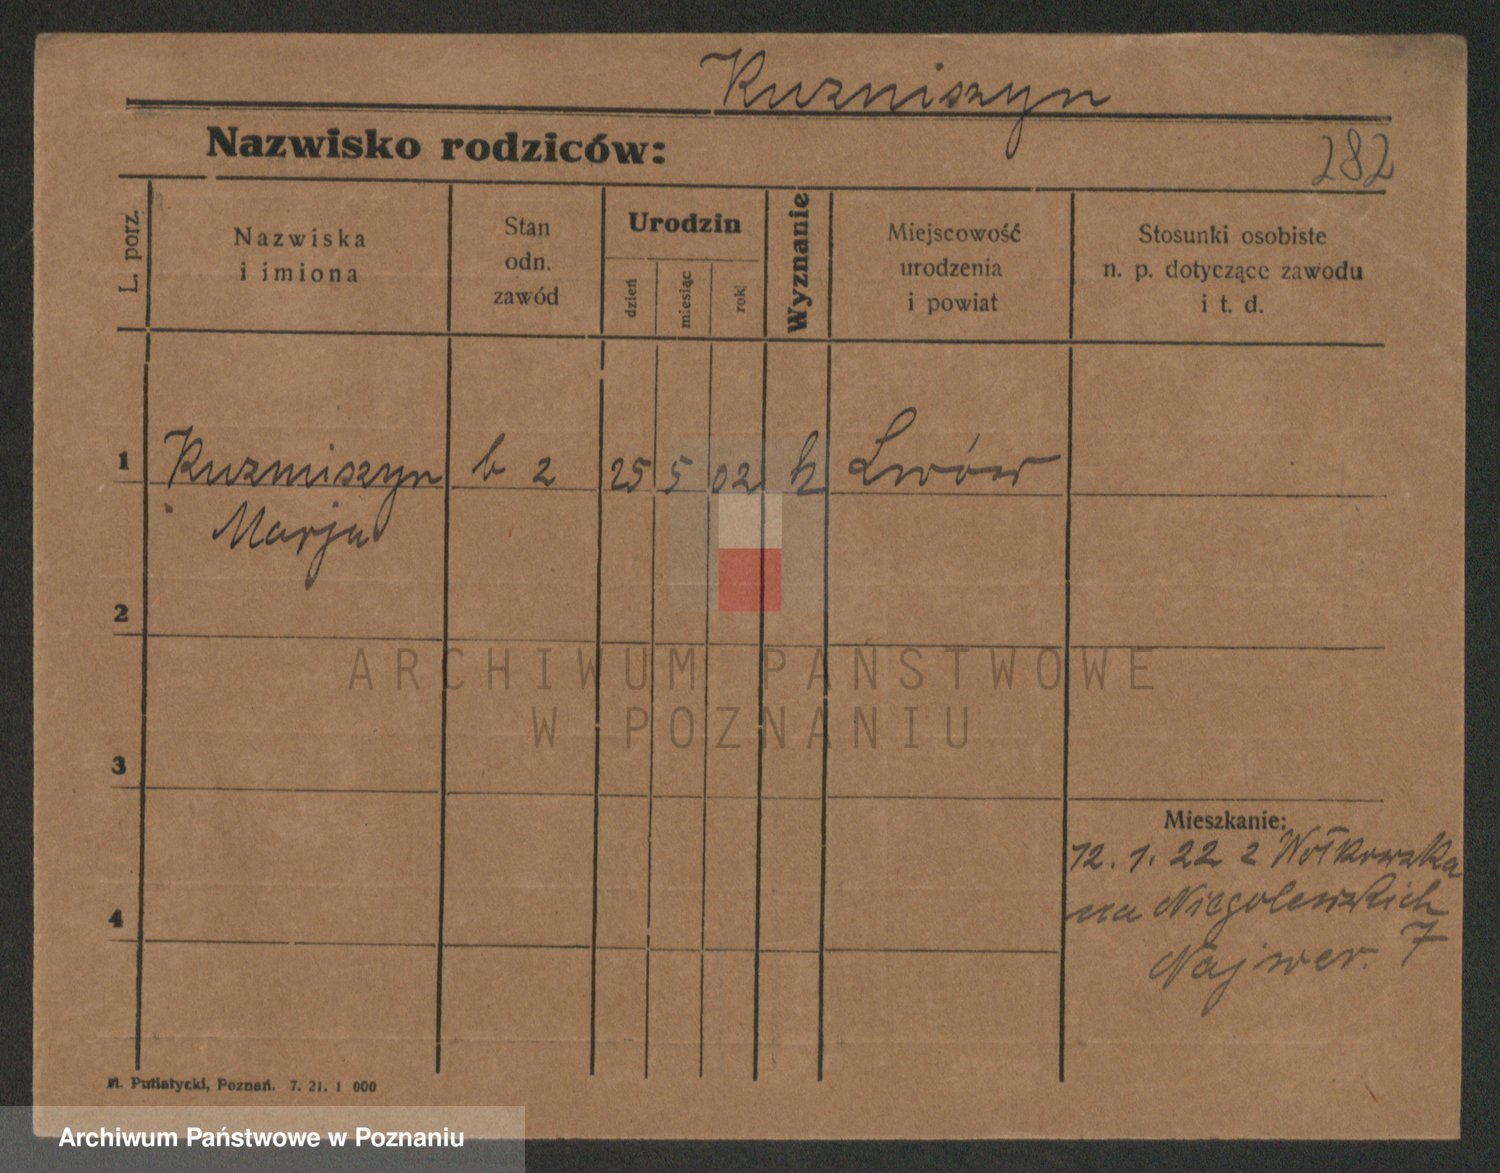 Kuzniszyn
Nazwisko rodziców:
282
L. porz.
Nazwiska
i imiona
Stan
odn.
zawód
Urodzin
dzień
miesiąc
rok
Wyznanie
Miejscowość
urodzenia
i powiat
Stosunki osobiste
n. p. dotyczące zawodu
i t. d.
1 Kuzniszyn b 2 25 5 02 k Lwów
Marja
2
3
4
ARCHIWUM PAŃSTWOWE
W POZNANIU
Mieszkanie:
12. 1. 22 z Wołkowska
na Niegolewskich
Najwer. 7
M. Putiatycki, Poznań. 7. 21. 1 000
Archiwum Państwowe w Poznaniu